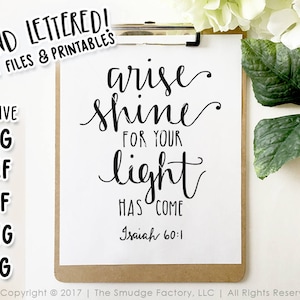 ND LETTERED!
FILES & PRINTABLES
arise
shine
FOR YOUR
light
HAS COME
Isaiah 60:1
IVE
G
F
F
G
G
Copyright © 2017 | The Smudge Factory, LLC | All Rights Reser